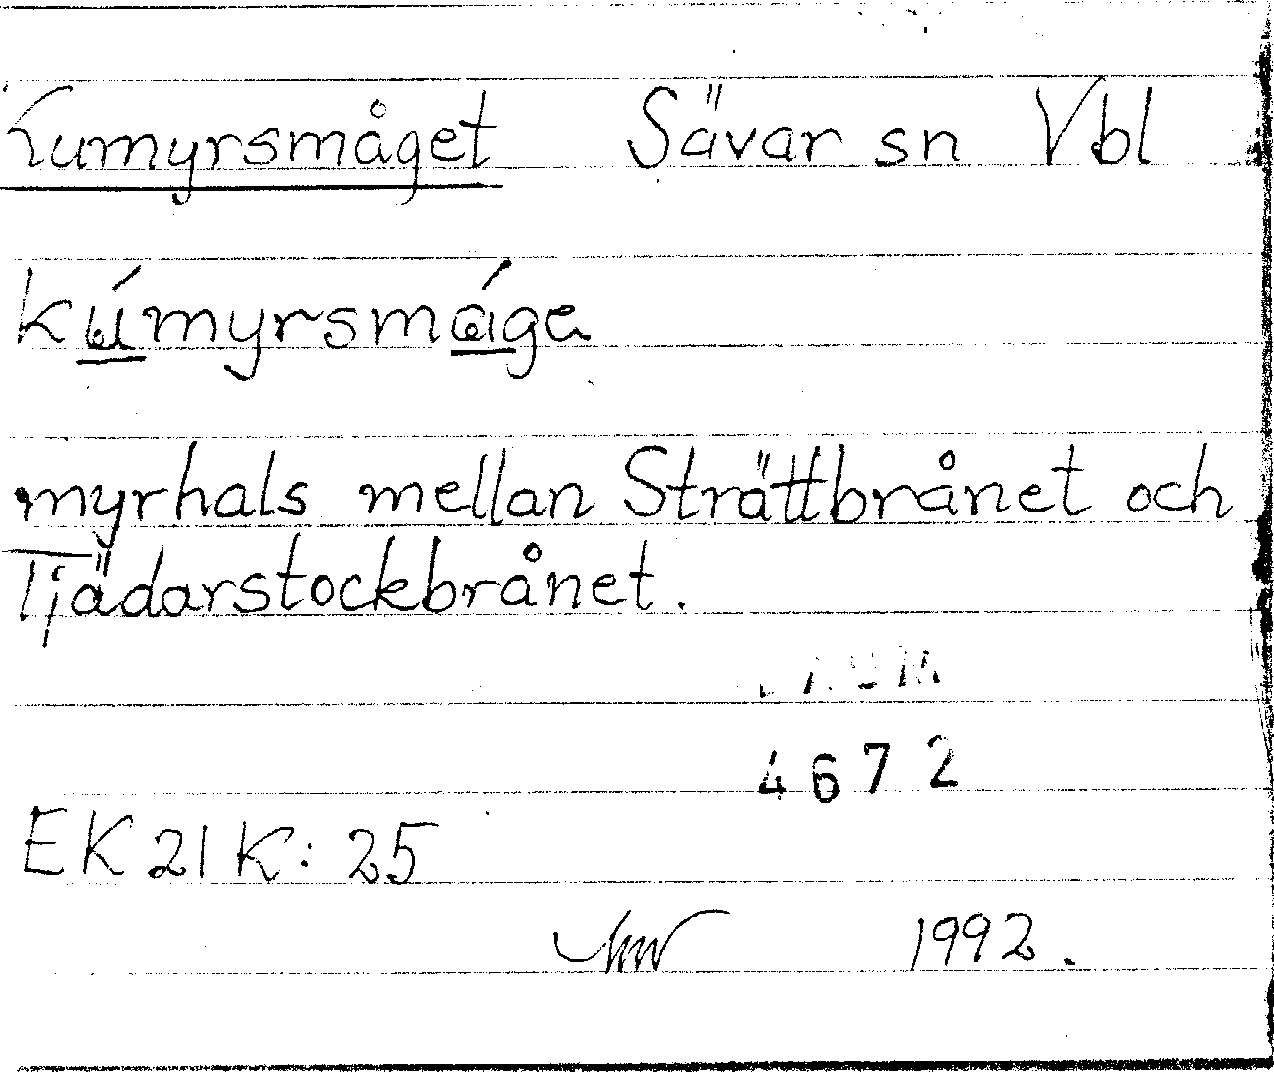 Kumyrsmåget Sävar sn Vbl
kúmyrsmǻge
myrhals mellan Strättbrånet och
Tjädarstockbrånet.
4672
EK 21 K: 25
1992.